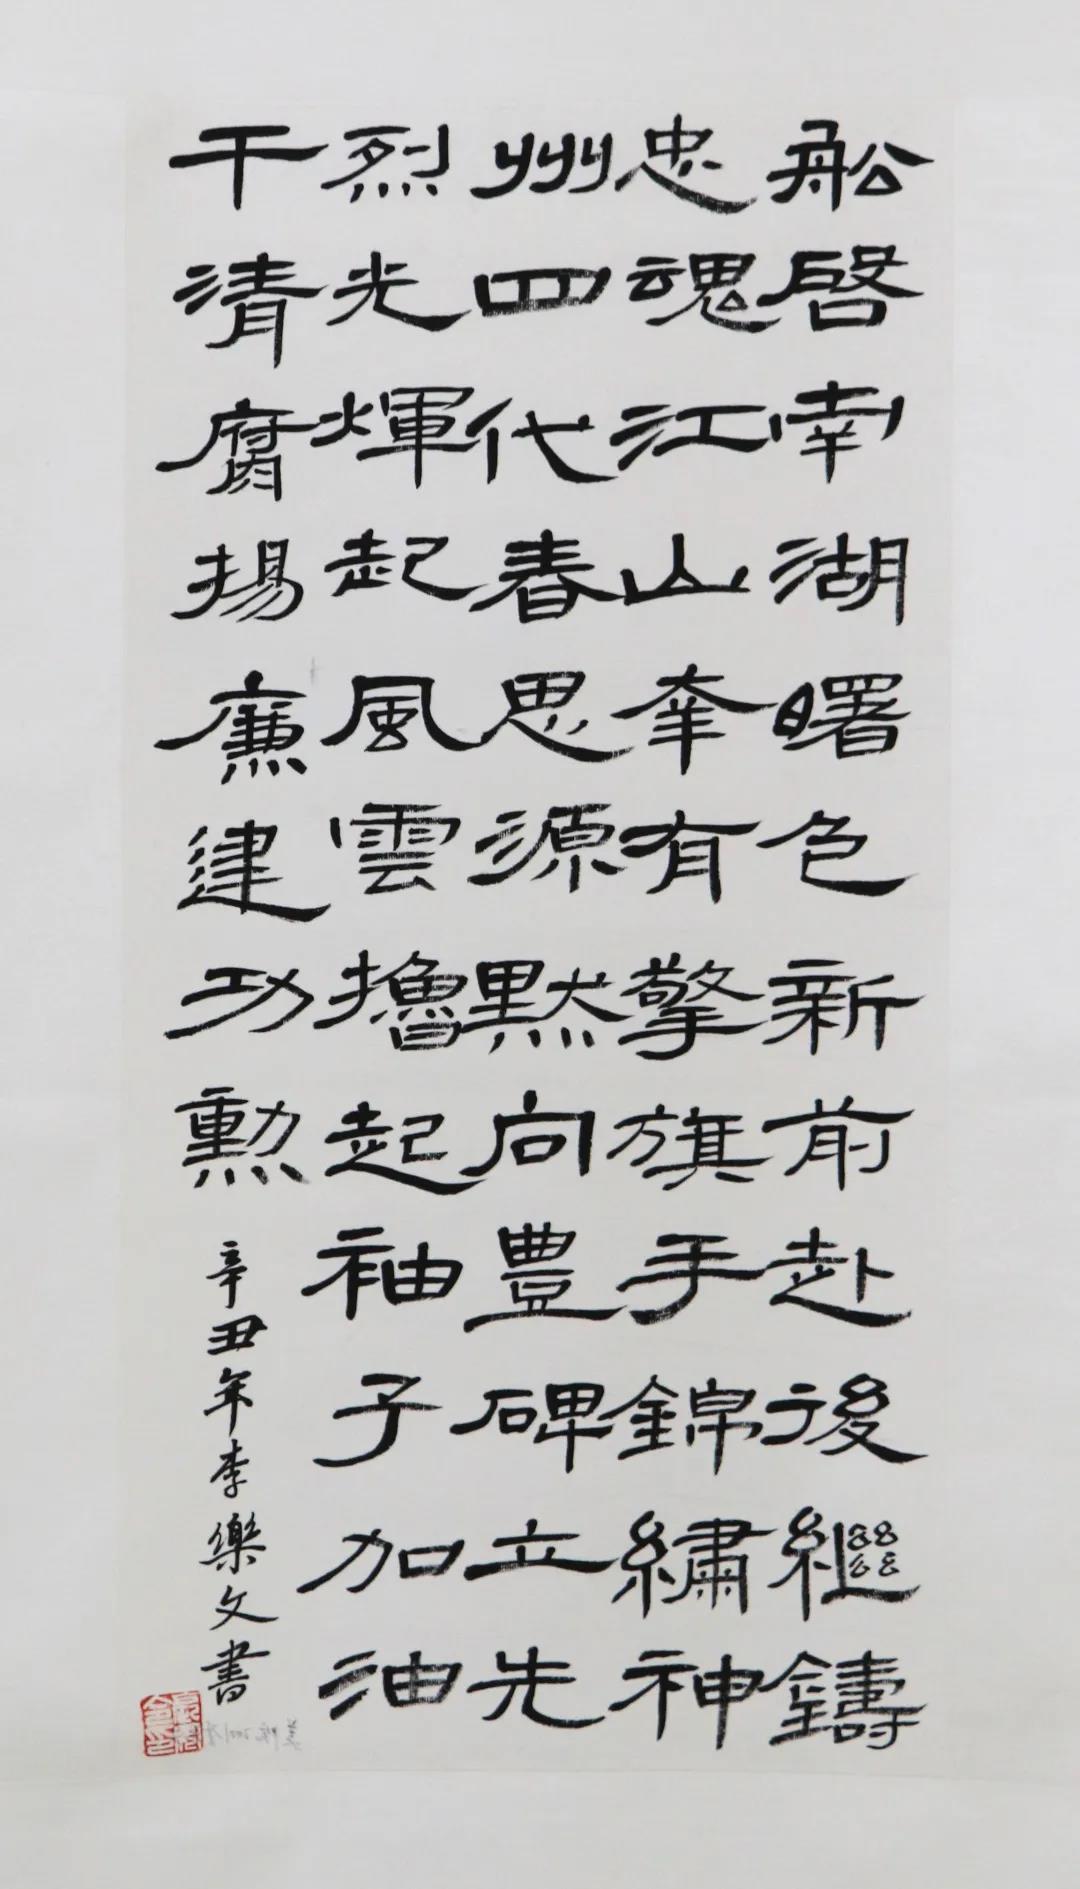 船啓南湖曙色新前赴後繼鑄
忠魂江山牽有擎旗手錦繡神
州四代春思源默向豊碑立先
烈光輝起風雲擼起袖子加油
干清腐揚廉建功勲
辛丑年李樂文書